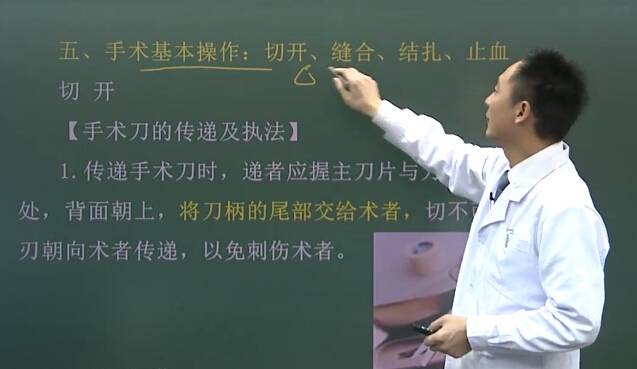 五、手术基本操作：切开、缝合、结扎、止血
切 开
【手术刀的传递及执法】
1.传递手术刀时，递者应握主刀片与
处，背面朝上，将刀柄的尾部交给术者，切不
刃朝向术者传递，以免刺伤术者。